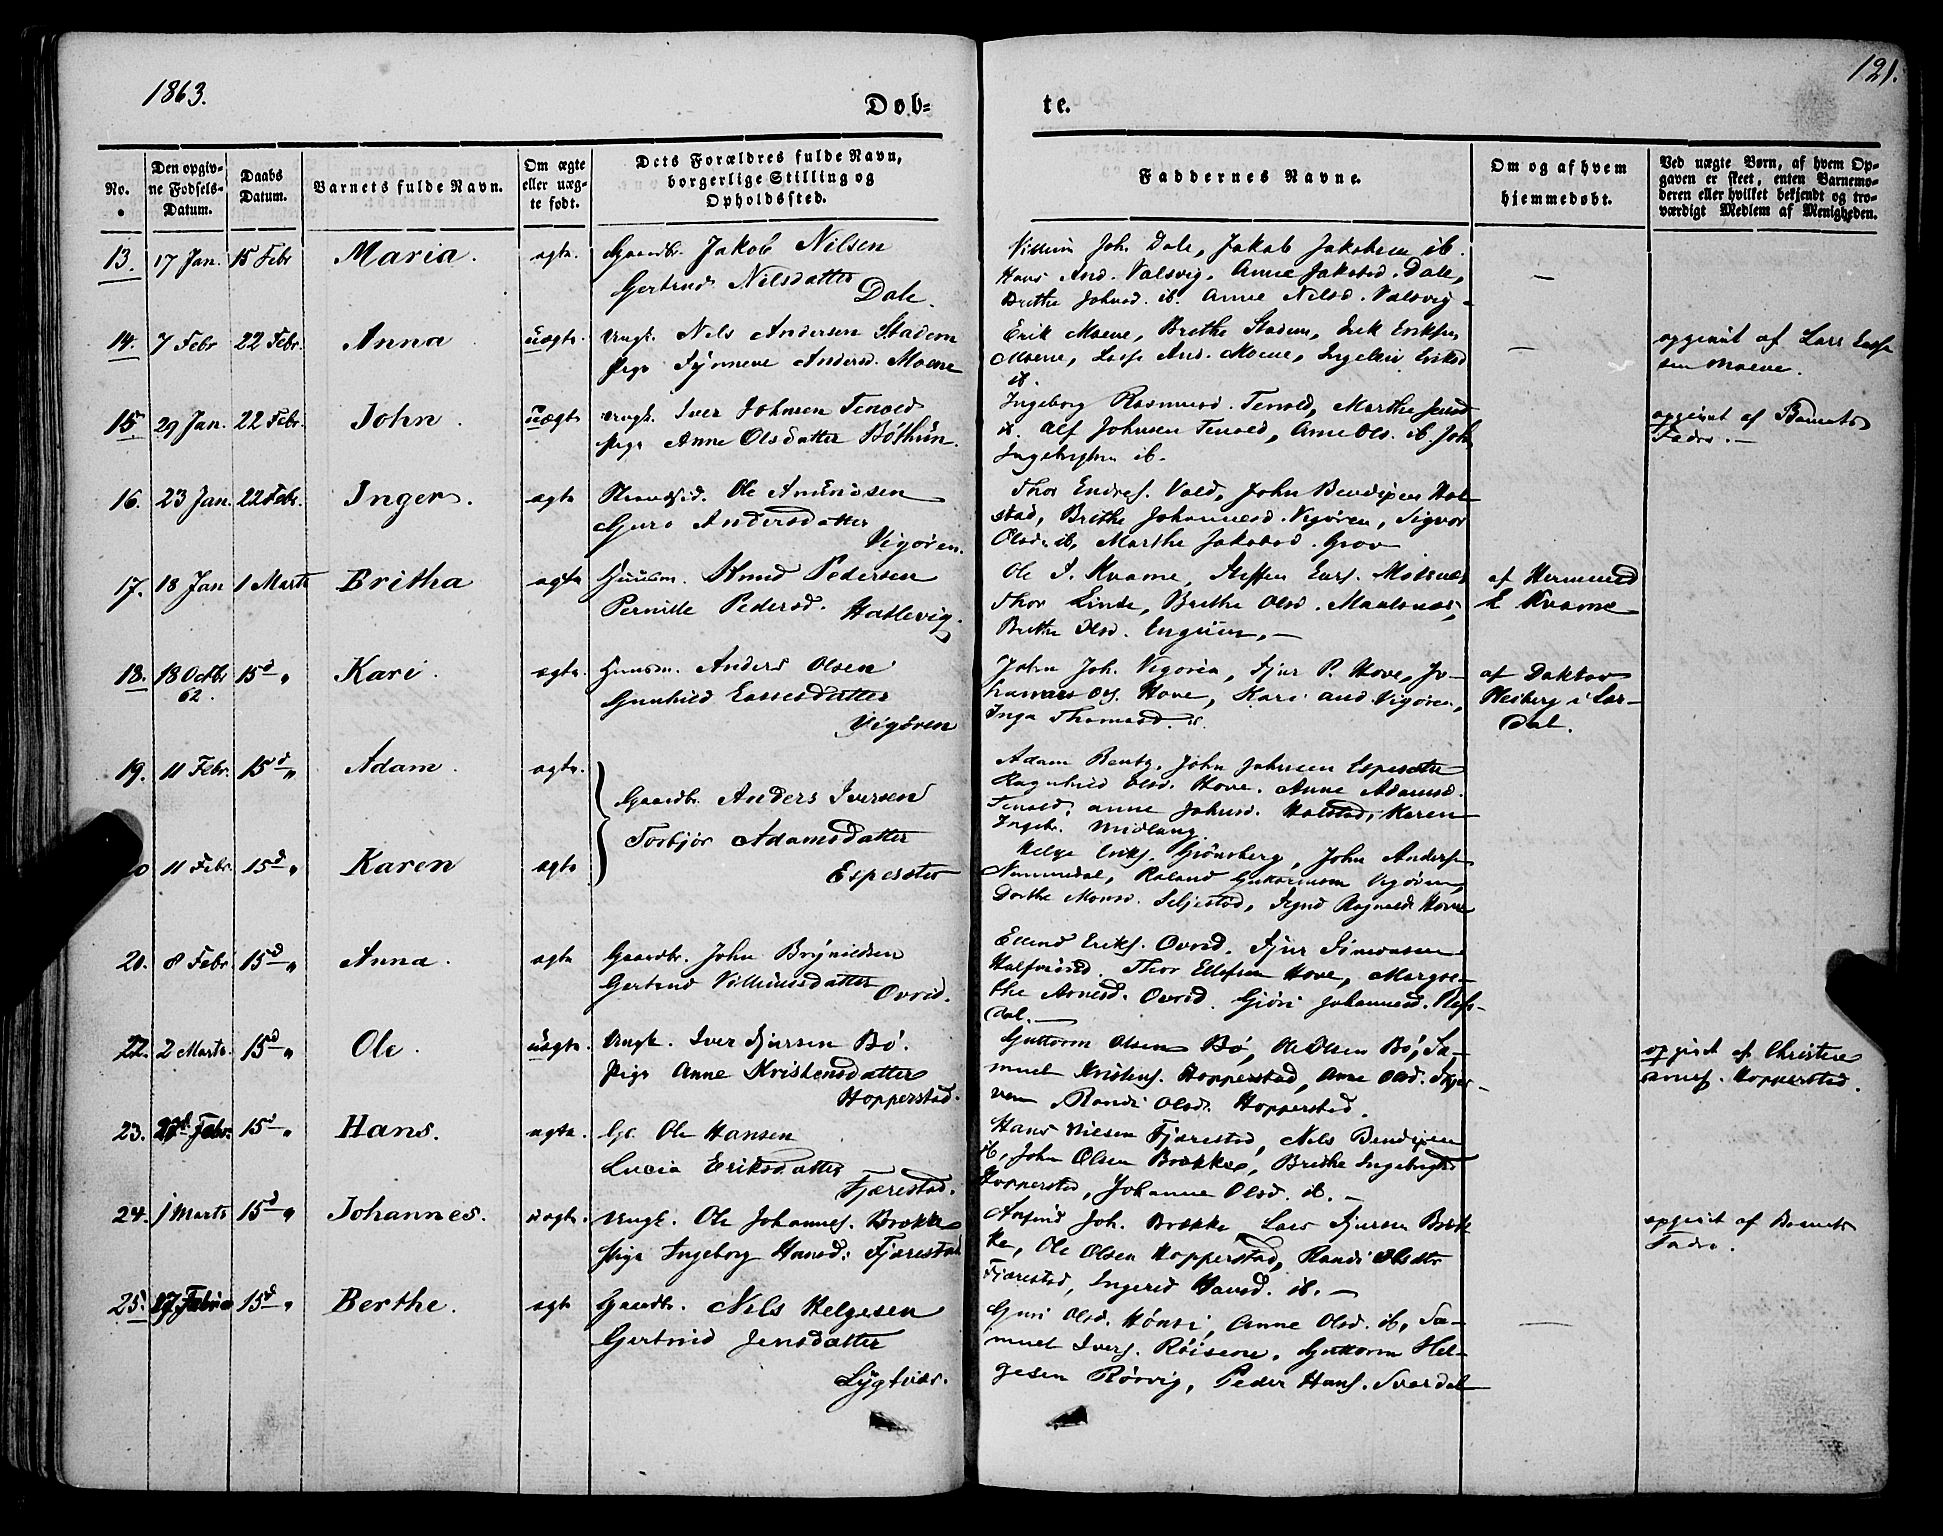 1863.
121.
Døb-
te.
No.
Den opgiv-
ne Fødsels-
Datum.
Daabs
Datum.
Barnets fulde Navn.
Om ægte
eller uæg-
te født.
Dets Forældres fulde Navn,
borgerlige Stilling og
Opholdssted.
Faddernes Navne.
Om og af hvem
hjemmedøbt.
Ved uægte Børn, af hvem Op-
gaven er skeet, enten Barnemo-
deren eller hvilket bekjendt og tro-
værdigt Medlem af Menigheden.
13. 17 Jan. 15 Febr Maria. ægte.
Gaardbr. Jakob Nilsen
Gertrud Nilsdatter
Dale.
Joh. Dale, Jakob Jakobsen ib.
Hans And. Valsvig, Anne Jakobsd. Dale,
Brithe Johnsd. ib. Anne Nilsd. Valsvig.
—
14. 7 Febr 22 Febr. Anna. uægte.
Ungk. Nels Andersen Stadem
Pige Synneve Andersd. Moene
Erik Moene, Brithe Stadem, Erik Eriksen
Moene, Lasse And. Moene, Eriksd
ib.
—
opgivet af Lars Lasse
sen Moene.
15. 29 Jan. 22 Febr. John. uægte
Ungk. Iver Johnsen Tenold
Pige Anne Olsdatter Bøthun.
Ingeborg Rasmusd. Tenold, Marthe Jensd
ib. Alf Johnsen Tenold, Arne Ols. ib. John
ib.
opgivet af Barnets
Fader. —
16. 23 Jan. 22 Febr. Inger. ægte
Strandsid. Ole Amundsen
Guro Andersdatter
Vigøren.
Thor Endres. Vold, John Bendixen Hol-
stad, Brithe Johannesd. Vigøren, Sigvor
Olsd. ib, Marthe Jakobsd. Grov
17. 18 Jan 1 Marts Britha ægte
Huusm. Knud Pedersen
Pernille Pedersd. Hatlevig.
Ole I. Kvame, Steffen
Thor Linde, Brithe Olsd. Maalsnæs,
Brithe Olsd. Engum, —
af Hermund
E Kvame
18. 18 Octbr
62. 15d „ Kari. ægte.
Huusm. Anders Olsen
Gunhild Lassesdatter
Vigøren
John Joh. Vigøren, Sjur P. Hove, Jo-
hannes Ols. Hove, Kari And. Vigøren,
Inga Thomasd. ib.
af Doktor
i Lær-
dal.
19. 11 Febr. 15d „ Adam. ægte.
Gaardbr. Anders Iversen
Torbjør Adamsdatter
Espesete
Adam Bentz. John Johnsen Espesete
Ragnhild Olsd. Hove. Anne Adamsd.
Tenold. Anne Johnsd. Holstad, Karen
Ingebr. Midlang.
0 11 Febr. 15d „ Karen ægte
Helge Eriks. Grønsberg, John Anders.
Nummedal, Roland Guttormsen Vigøren,
Dorthe Monsd. Seljestad, Hove
21. 8 Febr. 15d „ Anna. ægte
Gaardbr. John Brynildsen
Gertrud Villumsdatter
Ovrid.
Ellend Eriks. Ovrid. Sjur Simonsen
Thor Ellefsen Hove, Margre-
the Arnesd. Ovrid. Gjøri Johannesd. Refs-
dal. —
22. 2 Marts. 15d „ Ole. uægte.
Ungk. Iver Sjursen Bø.
Pige Anne Kristensdatter
Hopperstad.
Guttorm Olsen Bø, Ole Olsen Bø, Sa-
muel Kristens. Hopperstad, Anne Olsd.
Randi Olsd. Hopperstad.
opgivet af Christen
Hopperstad.
23. Febr. 15d „ Hans. ægte.
Ole Hansen
Lucia Eriksdatter
Fjærestad.
Hans Nilsen Fjærestad, Nels Bendixen
ib, John Olsen Brække, Brithe Ingebrigtsd
Hopperstad, Johanne Olsd. ib. —
24. 1 Marts 15d „ Johannes. uægte.
Ungk. Ole Johannes. Brække
Pige Ingeborg Hansd: Fjærestad
Joh. Brække, Lars Sjursen Bræk-
ke, Ole Olsen Hopperstad, Randi Olsdtr
Fjærestad, Ingerid Hansd. ib. —
opgivet af Barnets
Fader.
25. 17 Febr 15d „ Berthe. ægte
Gaardbr. Nels Helgesen
Gertrud Jensdatter
Guri Olsd. Hønsi, Anne Olsd. ib, Sa-
muel Ivers. Røisene, Guttorm Hel-
gesen Rørvig, Peder Hans. Sværdal
—